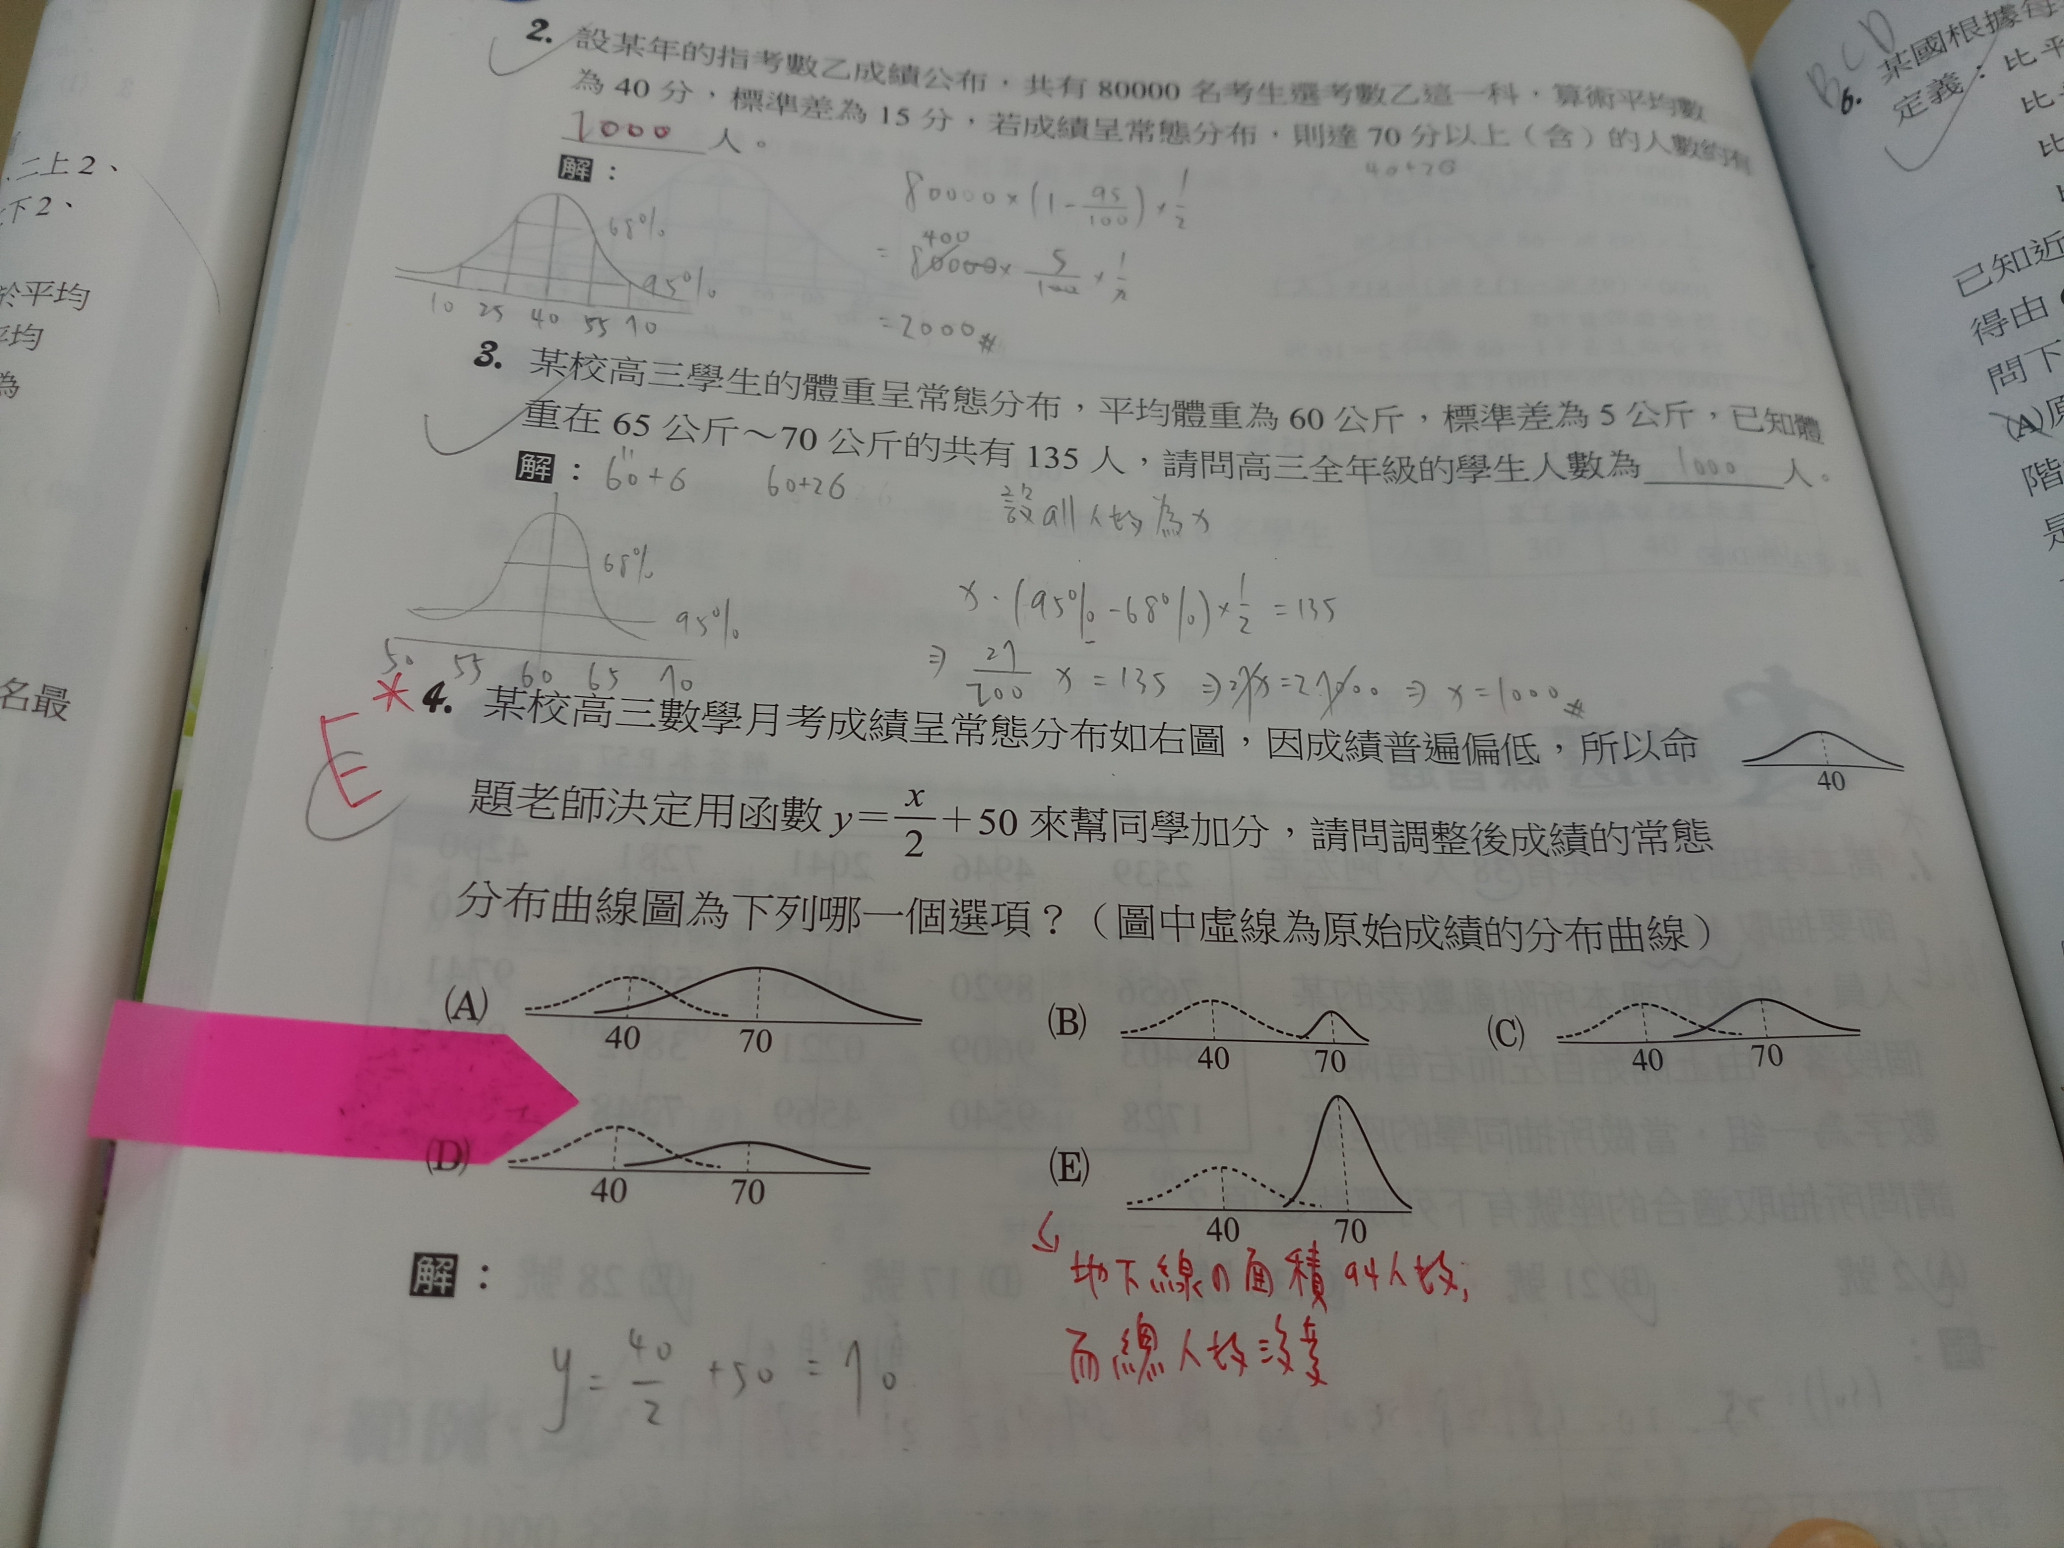 2. 設某年的指考數乙成績公布，共有 80000 名考生選考數乙這一科，算術平均數
為 40 分，標準差為 15 分，若成績呈常態分布，則達 70 分以上（含）的人數約有
1000 人。
40+2σ
解：
80000×(1-95/100)×1/2
400
=80000×5/100×1/2
=2000#
68%
95%
10 25 40 55 70
3. 某校高三學生的體重呈常態分布，平均體重為 60 公斤，標準差為 5 公斤，已知體
重在 65 公斤～70 公斤的共有 135 人，請問高三全年級的學生人數為 1000 人。
解：60+σ 60+2σ
設all人數為x
68%
95%
50 55 60 65 70
x·(95%-68%)×1/2=135
⇒ 27/200 x=135 ⇒27x=27000 ⇒x=1000#
E
*4. 某校高三數學月考成績呈常態分布如右圖，因成績普遍偏低，所以命
題老師決定用函數 y=x/2+50 來幫同學加分，請問調整後成績的常態
分布曲線圖為下列哪一個選項？（圖中虛線為原始成績的分布曲線）
40
(A) 40 70
(B) 40 70
(C) 40 70
(D) 40 70
(E) 40 70
解：
y=40/2+50=70
而總人數沒變
BCD
6. 某國根據每
定義：比平
比
比
已知近
得由
問下
(A)原
階
是
二上2、
下2、
於平均
平均
為
名最